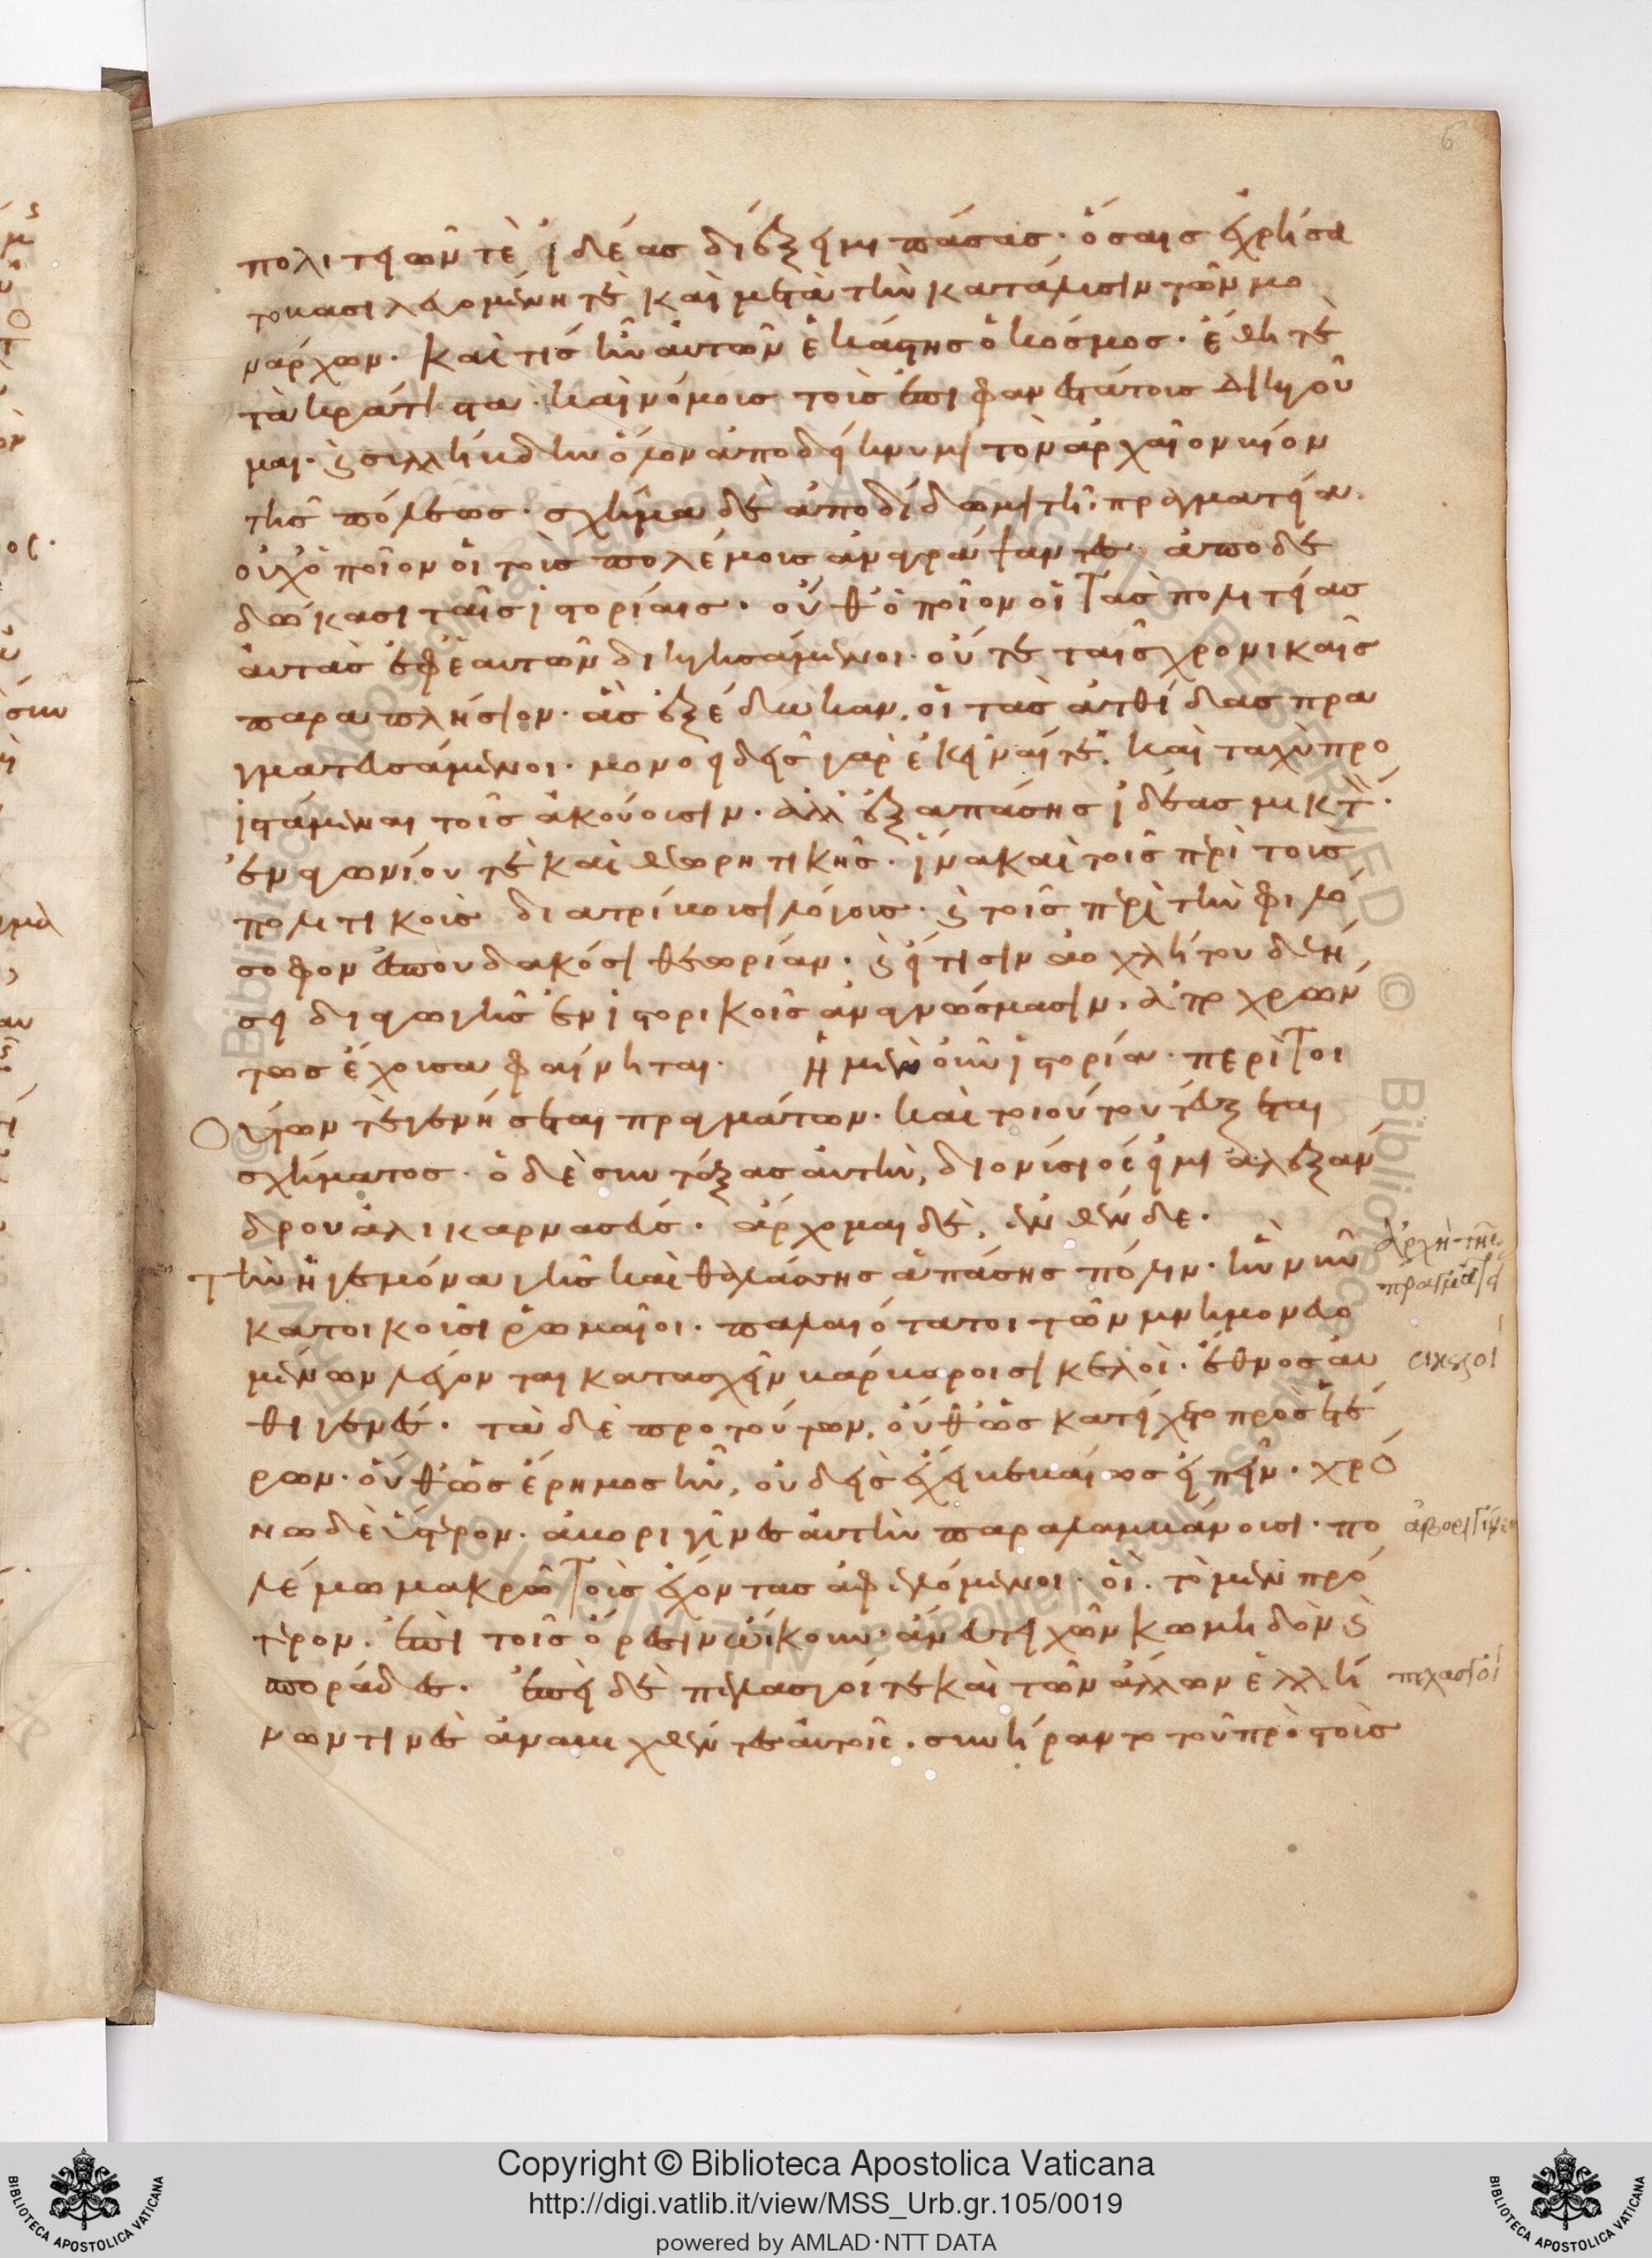 6
πολιτειῶν τὲ ἰδέας διέξειμι πάσας· ὅσαις ἐχρήσα
το βασιλευομένη τὲ καὶ μετὰ τὴν κατάλυσιν τῶν μο
νάρχων· καὶ τίς ἦν αὐτῶν ἑκάστης ὁ κόσμος· ἔθη τὲ
τὰ κράτιστα· καὶ νόμους τοὺς ἐπιφανεστάτους διηγοῦ
μαι· καὶ συλλήβδην ὅλον ἀποδείκνυμι τὸν ἀρχαῖον βίον
τῆς πόλεως· σχῆμα δὲ ἀποδίδωμι τῆ πραγματεία.
οὐχ ὁποῖον οἱ τοὺς πολέμους ἀναγράψαντες ἀποδε
δώκασι ταῖς ἱστορίαις· οὔθ ὁποῖον οἱ τὰς πολιτείας
αὐτὰς ἐφ ἑαυτῶν διηγησάμενοι· οὔτε ταῖς χρονικαῖς
παραπλήσιον· ἃς ἐξέδωκαν, οἱ τὰς ἀτθίδας πρα
γματευσάμενοι· μονοειδεῖς γὰρ ἐκεῖναί τε, καὶ ταχὺ προ
ιστάμεναι τοῖς ἀκούουσιν· ἀλλ ἐξ ἁπάσης ἰδέας μικτὸν
ἐναγωνίου τὲ καὶ θεωρητικῆς· ἵνα καὶ τοῖς περὶ τοὺς
πολιτικοὺς διατρίβουσι λόγους· καὶ τοῖς περὶ τὴν φιλό
σοφον ἐσπουδακόσι θεωρίαν· καὶ εἴ τισιν ἀοχλήτου δεή
σει διαγωγῆς ἐν ἱστορικοῖς ἀναγνώσμασιν, ἀποχρών
τως ἔχουσα φαίνηται· ἡ μὲν οὖν ἱστορία· περὶ τοι
ούτων τὲ γενήσεται πραγμάτων· καὶ τοιούτου τεύξεται
σχήματος· ὁ δὲ συντάξας αὐτὴν, διονύσιός εἰμι ἀλεξάν
δρου ἁλικαρνασεύς· ἄρχομαι δὲ, ἐνθένδε·
τὴν ἡγεμόνα γῆς καὶ θαλάσσης ἁπάσης πόλιν· ἣν νῦν
κατοικοῦσι ῥωμαῖοι· παλαιότατοι τῶν μνημονευο
μένων λέγονται κατασχεῖν βάρβαροι σικελοὶ· ἔθνος αὐ
θιγενές· τὰ δὲ πρὸ τούτων, οὔθ ὡς κατείχετο πρὸς ἑτέ
ρων· οὔθ ὡς ἔρημος ἦν, οὐδεὶς ἔχει βεβαίως εἰπεῖν· χρό
νω δὲ ὕστερον· ἀβοριγῖνες αὐτὴν παραλαμβάνουσι· πο
λέμω μακρῶ τοὺς ἔχοντας ἀφελόμενοι· οἳ. τὸ μὲν πρό
τερον· ἐπὶ τοῖς ὄρεσιν ὤικουν· ἄνευ τειχῶν κωμηδὸν καὶ
σποράδες· ἐπεὶ δὲ πελασγοί τε καὶ τῶν ἄλλων ἑλλή
νων τινὲς ἀναμιχθέντες αὐτοῖς· συνήραντο τοῦ πρὸς τοὺς
ἀρχὴ τῆς
πραγματεί
σικελοί
ἀβοριγίνες
πελασγοί
Copyright © Biblioteca Apostolica Vaticana
http://digi.vatlib.it/view/MSS_Urb.gr.105/0019
powered by AMLAD·NTT DATA
BIBLIOTECA APOSTOLICA VATICANA
BIBLIOTECA APOSTOLICA VATICANA